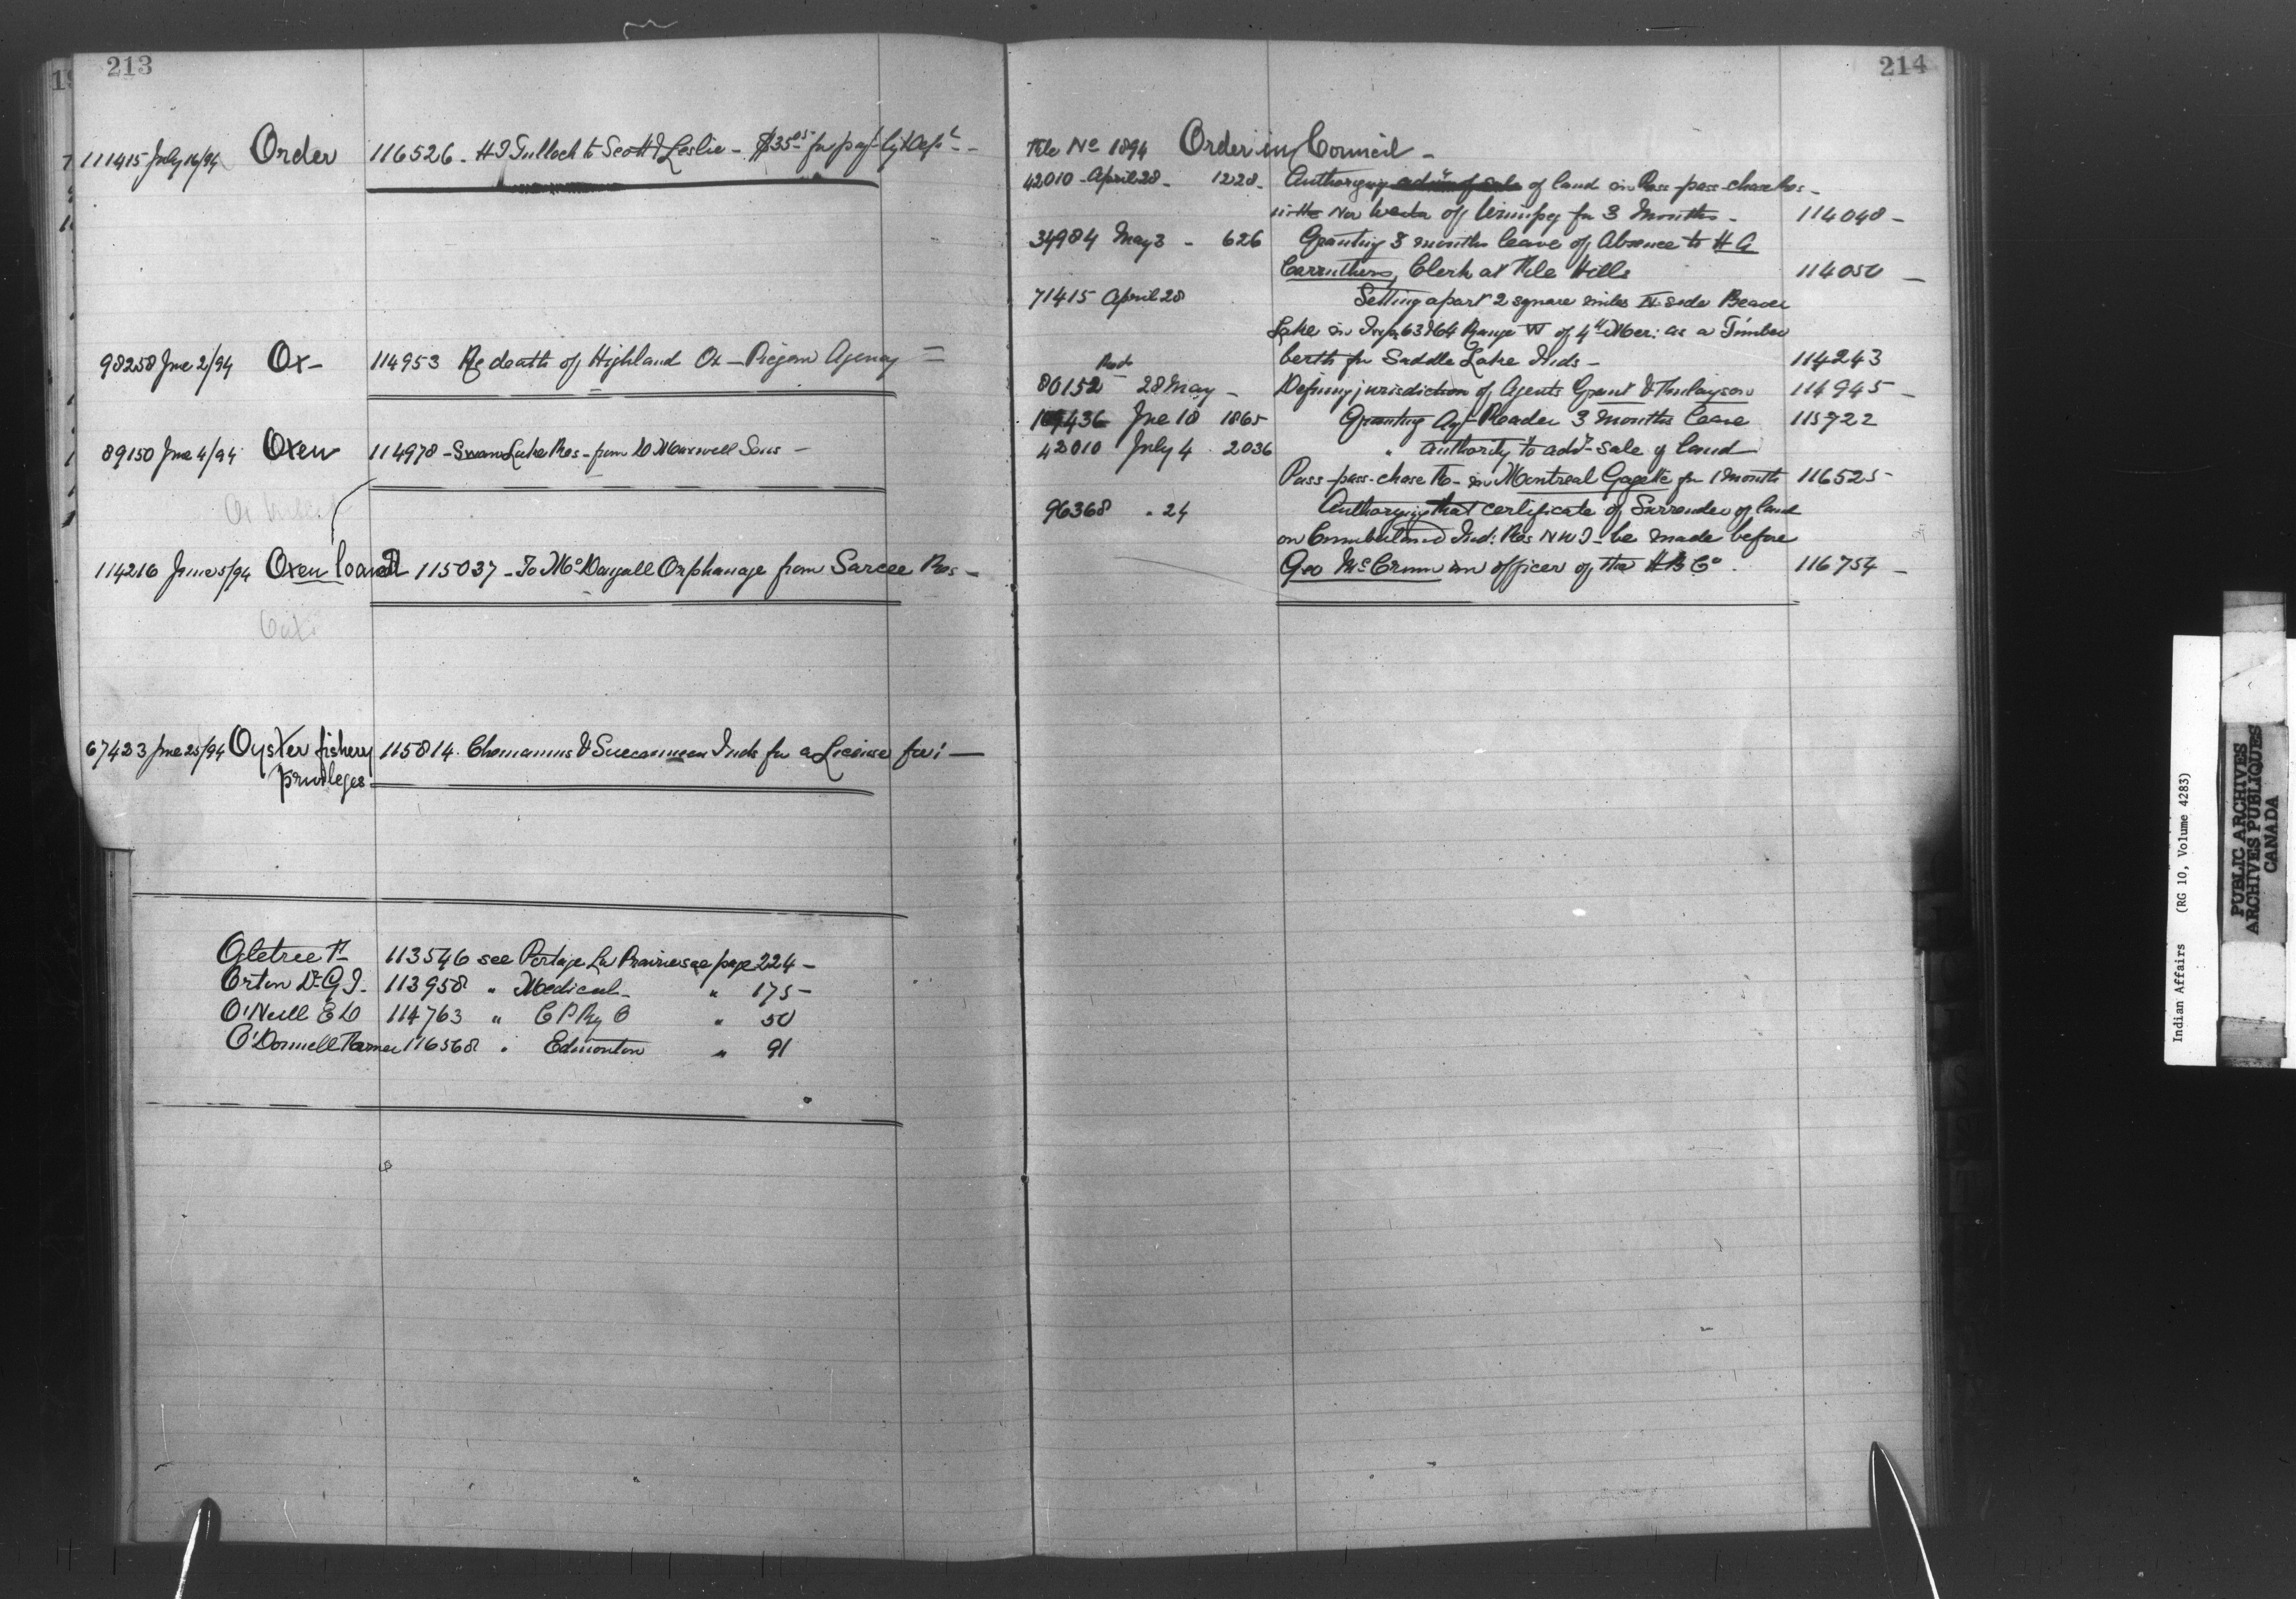 213
111415 July 16/94 Order 116526. H J Tulloch to Scott & Leslie - $35.05 for pay't
98258 Jne 2/94 Ox - 114953 Re death of Highland Ox - Piegan Agency =
89150 Jne 4/94 Oxen 114978 - Swan Lake Res - from D Maxwell Sons -
114216 June 5/94 Oxen loaned 115037 - To McDougall Orphanage from Sarcee Res -
67423 Jne 25/94 Oyster fishery 115814. Chemainus & Indns for a License for: -
privileges
113546 see Portage La Prairie see page 224 -
Orton Dr G.T. 113958 " Medical - " 175 -
O'Neill E W 114763 " C P Ry C " 50
O'Donnell 116568 " Edmonton " 91
214
File No 1894 Order in Council -
42010 - April 28 - 1228 - Authorizing of land in Pass-pass-chase Res -
in the Nor Wester of Winnipeg for 3 Months - 114048 -
34984 May 3 - 626 Granting 3 months leave of Absence to H A
Carruthers, Clerk at File Hills 114050 -
71415 April 28 Setting apart 2 square miles N. side Beaver
Lake in Twps 63 & 64 Range of 4th Mer: as a Timber
berth for Saddle Lake Inds - 114243
80152 28 May - Defining jurisdiction of Agents Grant & Finlayson 114945 -
Jne 18 1865 Granting Agt Reader 3 Months leave 115722
42010 July 4 . 2036 " authority to advt sale of land
Pass-pass-chase R - in Montreal Gazette for 1 month 116525 -
96368 " 24 Authorizing that certificate of Surrender of land
on Cumberland Ind: Res NWT - be made before
Geo McCrum an officer of the H B Co . 116754 -
Indian Affairs (RG 10, Volume 4283)
PUBLIC ARCHIVES
ARCHIVES PUBLIQUES
CANADA